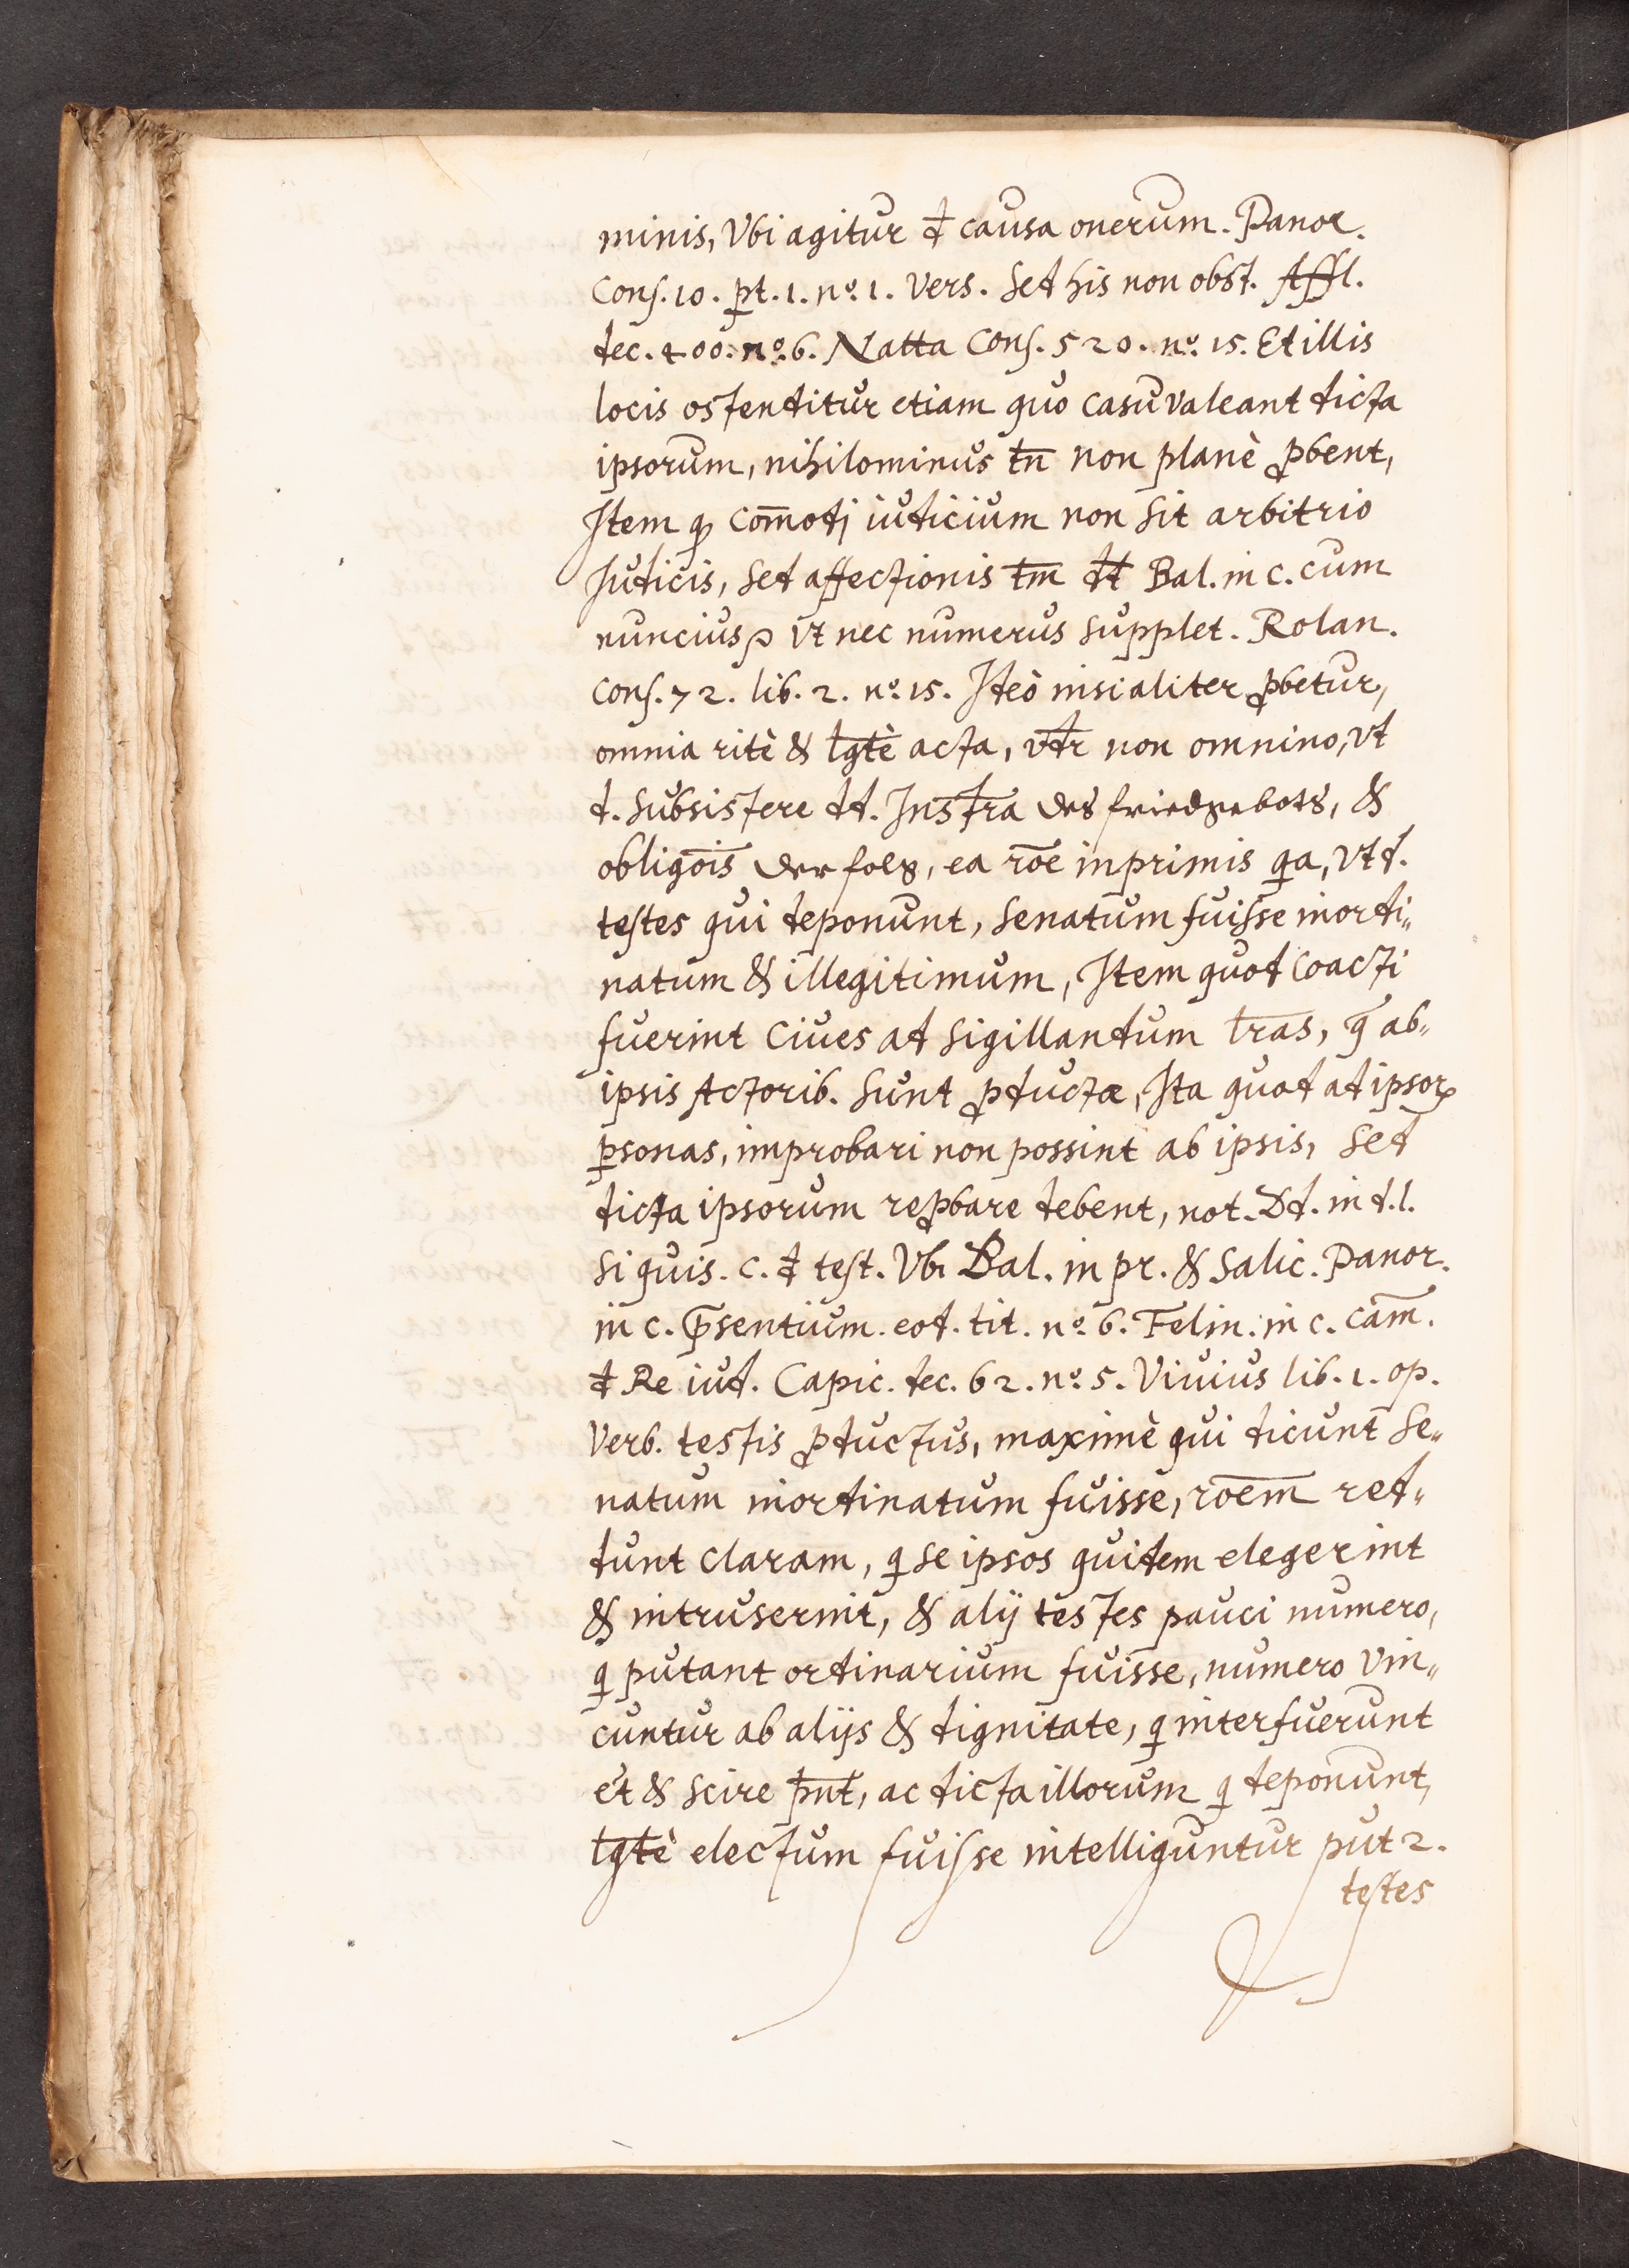 minis, Vbi agitur đ causa onerum. Panor.
Cons. 10. p̱t. 1. nº. 1. Vers. Sed his non obst. Affl.
dec. 400. nº. 6. Natta Cons. 520. nº. 15. Et illis
locis ostenditur etiam quo casu valeant dicta
ipsorum, nihilominus tn̄ non planè ꝓbent,
Item ꝙ com̄odj iudicium non sit arbitrio
Iudicis, sed affectionis tm̄ dt̄ Bal. in c. cum
nuncius, vt nec numerus supplet. Rolan.
Cons. 72. lib. 2. nº. 15. Ideò nisi aliter ꝓbetur,
omnia ritè & lgtè̄ acta, vdr̄ non omnino, vt
d. subsistere dd. Instr̄a des friedgebots, &
oblig̅ois der folg, ea rōe inprimis qa, vt d.
testes qui deponunt, Senatum fuisse inordi„
natum & illegitimum, Item quod coacti
fuerint Ciues ad sigillandum lr̄as, q̄ ab„
ipsis Actorib. sunt ꝓductæ, Ita quod ad ipsoꝝ
ꝑsonas, improbari non possint ab ipsis, sed
dicta ipsorum reꝓbare debent, not. Dd. in d. l.
si quis. C. đ test. Vbi Bal. in pr. & Salic. Panor.
in c. p̄sentium. eod. tit. nº. 6. Felin. in c. cām.
đ Re iud. Capic. dec. 62. nº. 5. Viuius lib. 1. op.
Verb. testis ꝓductus, maximè qui dicunt Se„
natum inordinatum fuisse, rōem red„
dunt claram, q se ipsos quidem elegerint
& intruserint, & alij testes pauci numero,
q putant ordinarium fuisse, numero vin„
cuntur ab alijs & dignitate, q interfuerunt
et & scire pn̄t, ac dicta illorum q deponunt,
lgtè̄ electum fuisse intelliguntur put 2.
testes